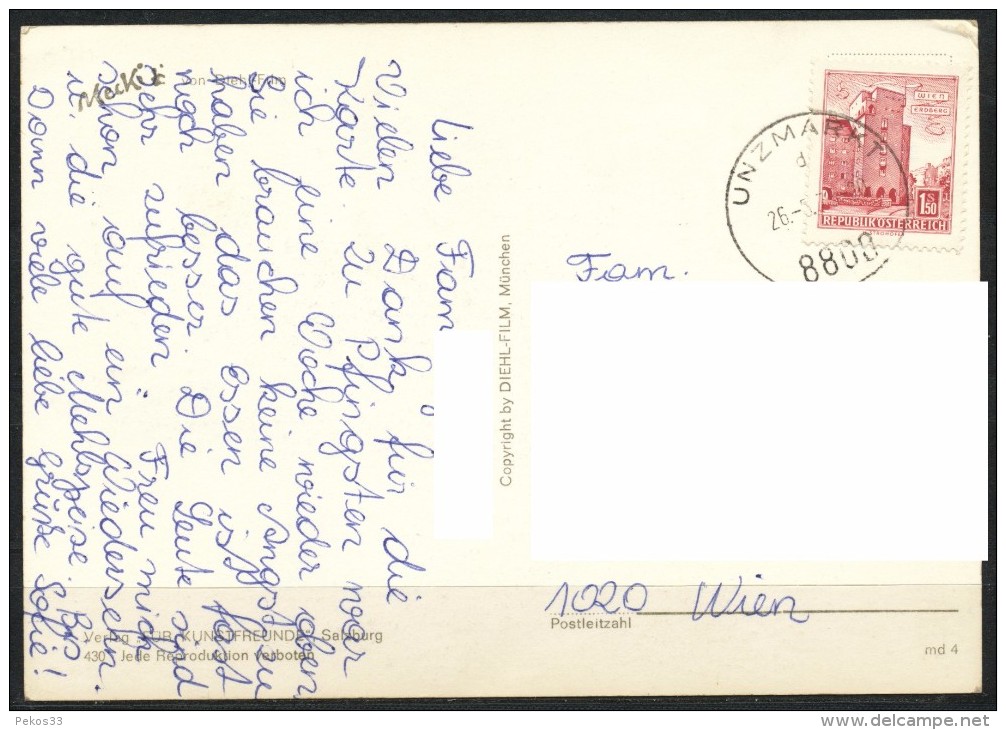 Mecki von Diehl-Film
Liebe Fam
Vielen Dank für die
Karte. Zu Pfingsten war
ich eine Woche wieder oben
Sie brauchen keine Angst zu
haben das Essen ist fast
noch besser. Die Leute sind
sehr zufrieden. Freu mich
schon auf ein Wiedersehen.
u. die gute Mehlspeise. Bis
Dann viele liebe Grüße Sofie!
Verlag "FÜR KUNSTFREUNDE" Salzburg
430 Jede Reproduktion verboten
Copyright by DIEHL-FILM, München
WIEN
ERDBERG
1 S 50
REPUBLIK ÖSTERREICH
UNZMARKT
d
26.-5.7
8800
Fam.
1020 Wien
Postleitzahl
md 4
Pekos33
www.delcampe.net